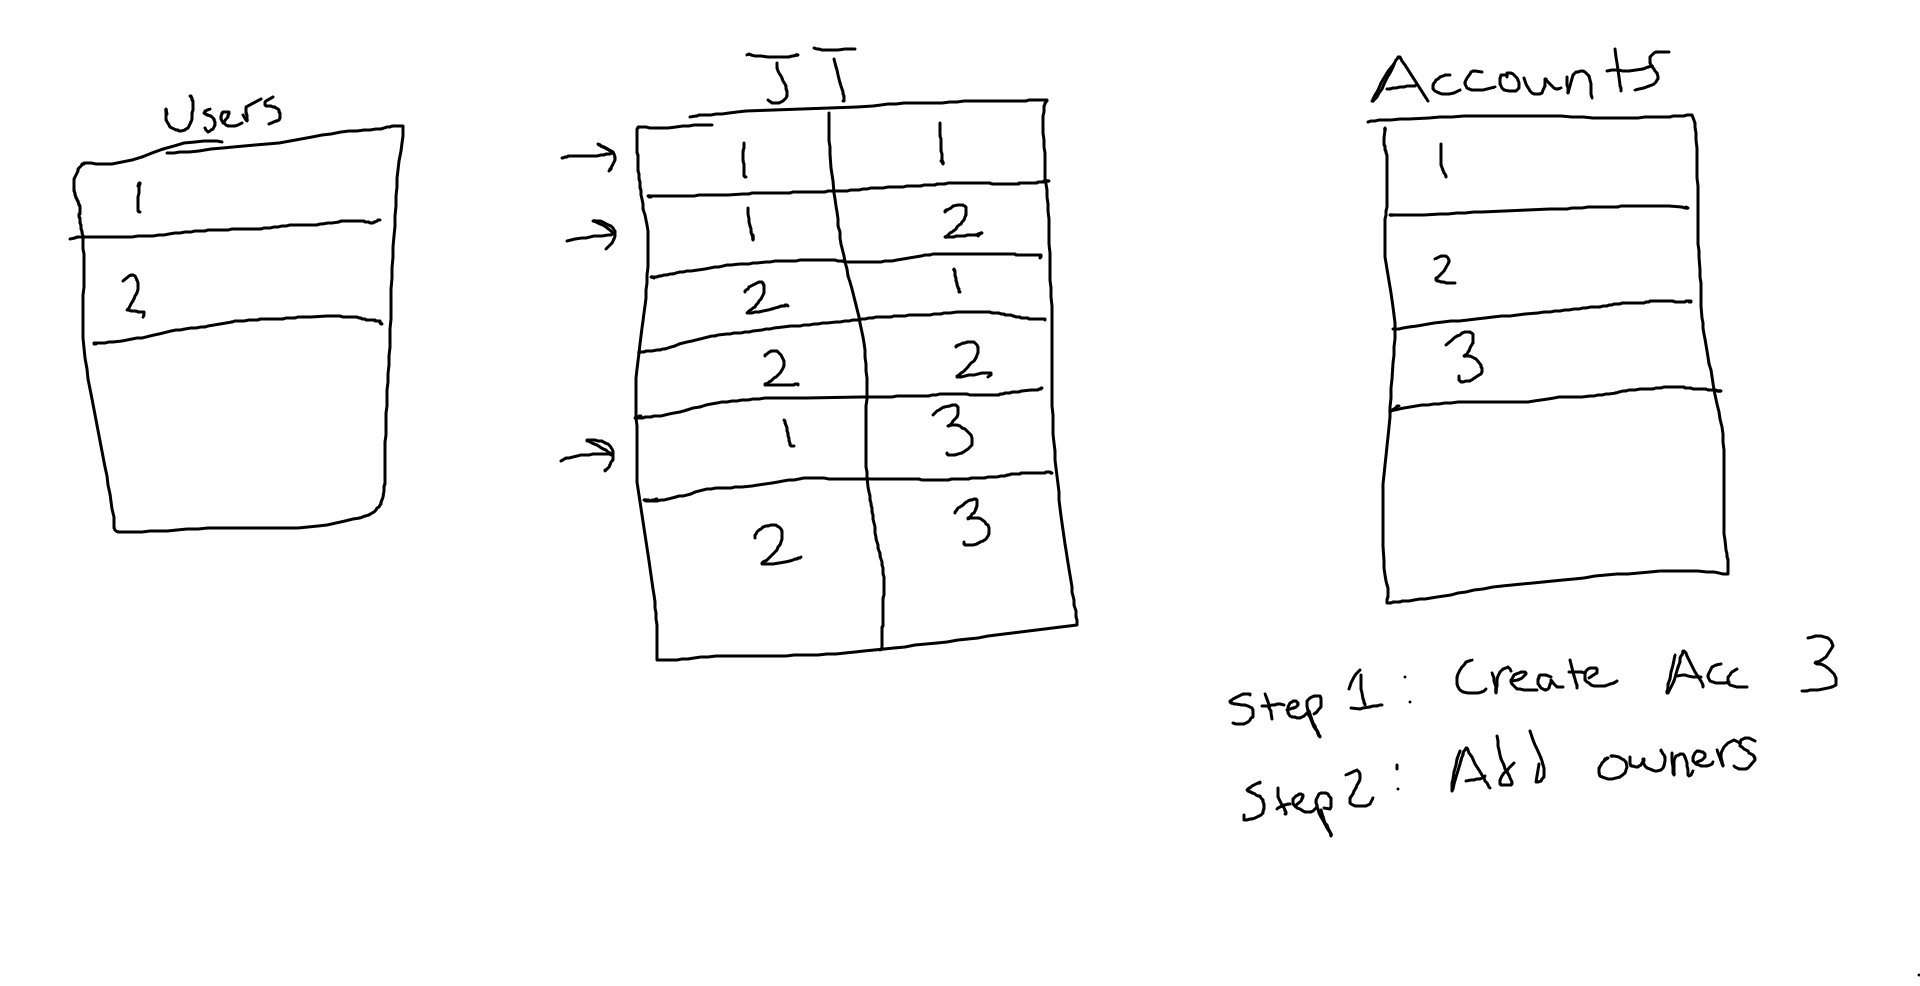 Users
1
2
JT
1 1
1 2
2 1
2 2
1 3
2 3
Accounts
1
2
3
Step 1: Create Acc 3
Step 2: Add owners